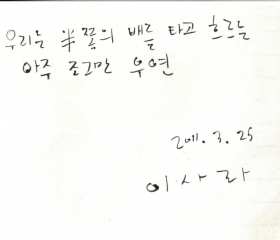 우리는 半쪽의 배를 타고 흐르는
아주 조그만 우연
2011. 3. 25
이 사 라